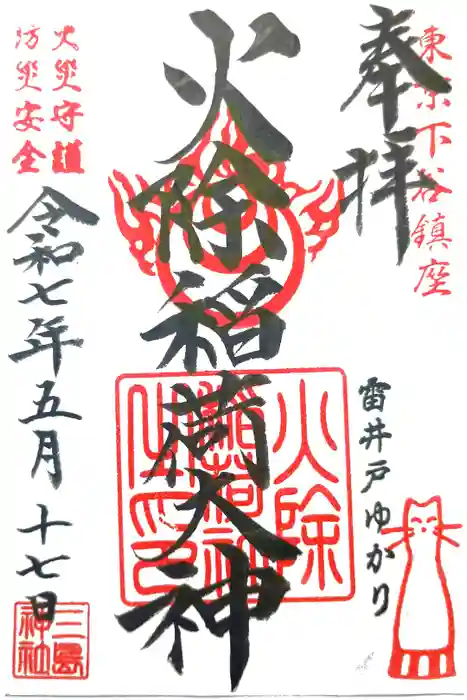 奉拝
東京下谷鎮座
火除稲荷大神
雷井戸ゆかり
火災守護
防災安全
令和七年五月十七日
火除
稲荷神
之印
三島
神社